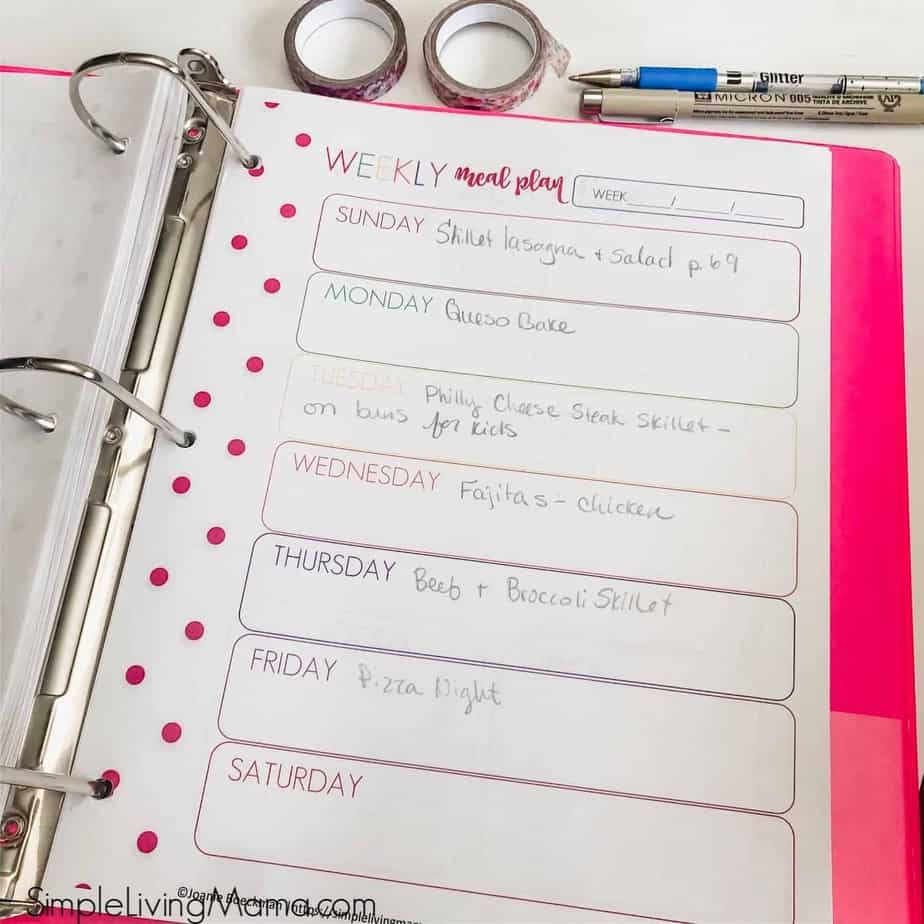 Glitter
MICRON 005
TINTA DE ARCHIVE
WEEKLY meal plan
WEEK ____/____/____
SUNDAY Skillet lasagna + salad p. 69
MONDAY Queso Bake
TUESDAY Philly Cheese Steak Skillet -
on buns for kids
WEDNESDAY Fajitas - chicken
THURSDAY Beef + Broccoli Skillet
FRIDAY Pizza Night
SATURDAY
©Joanie Boeckman | https://simplelivingmam
SimpleLivingMama.com